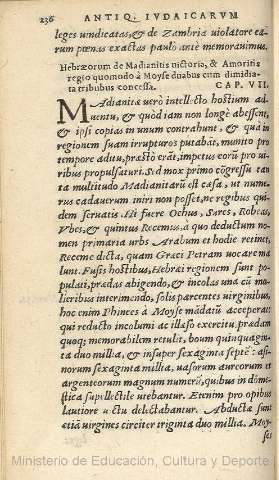 236 ANTIQ. IVDAICARVM
leges vindicatas, & de Zambria violatore ea-
rum pœnas exactas paulo ante memorauimus.
Hebræorum de Madianitis victoria, & Amoritis
regio quomodò à Moyse duabus cum dimidia-
ta tribubus concessa. CAP. VII.
MAdianitæ verò intellecto hostium ad-
uentu, & quòd iam non longè abessent,
& ipsi copias in vnum contrahunt, & quà in
regionem suam irrupturos putabāt, munito pro
tempore aditu, præstò erāt, impetus eorū pro vi-
ribus propulsaturi. Sed mox primo cōgressu tan
ta multitudo Madianitarū est cæsa, vt nume-
rus cadauerum iniri non posset, ne regibus qui-
dem seruatis. Ei fuere Ochus, Sares, Robeas,
Vbes, & quintus Recemus. a quo deductum no-
men primaria vrbs Arabum et hodie retinet,
Receme dicta, quam Græci Petram vocare ma
lunt. Fusis hostibus, Hebræi regionem sunt po-
pulati, prædas abigendo, & incolas vnà cū mu-
lieribus interimendo, solis parcentes virginibus,
hoc enim Phinees à Moyse mādatū acceperat:
qui reducto incolumi ac illæso exercitu, prædam
quoq; memorabilem retulit, boum quinquagin-
ta duo millia, & insuper sexaginta septē: asi-
norum sexaginta millia, vasorum aureorum et
argenteorum magnum numerū, quibus in dome-
stica supellectile vtebantur. Etenim pro opibus
lautiore victu delectabantur. Abductæ sunt
etiā virgines circiter triginta duo millia. Moy-
ses
Ministerio de Educación, Cultura y Deporte